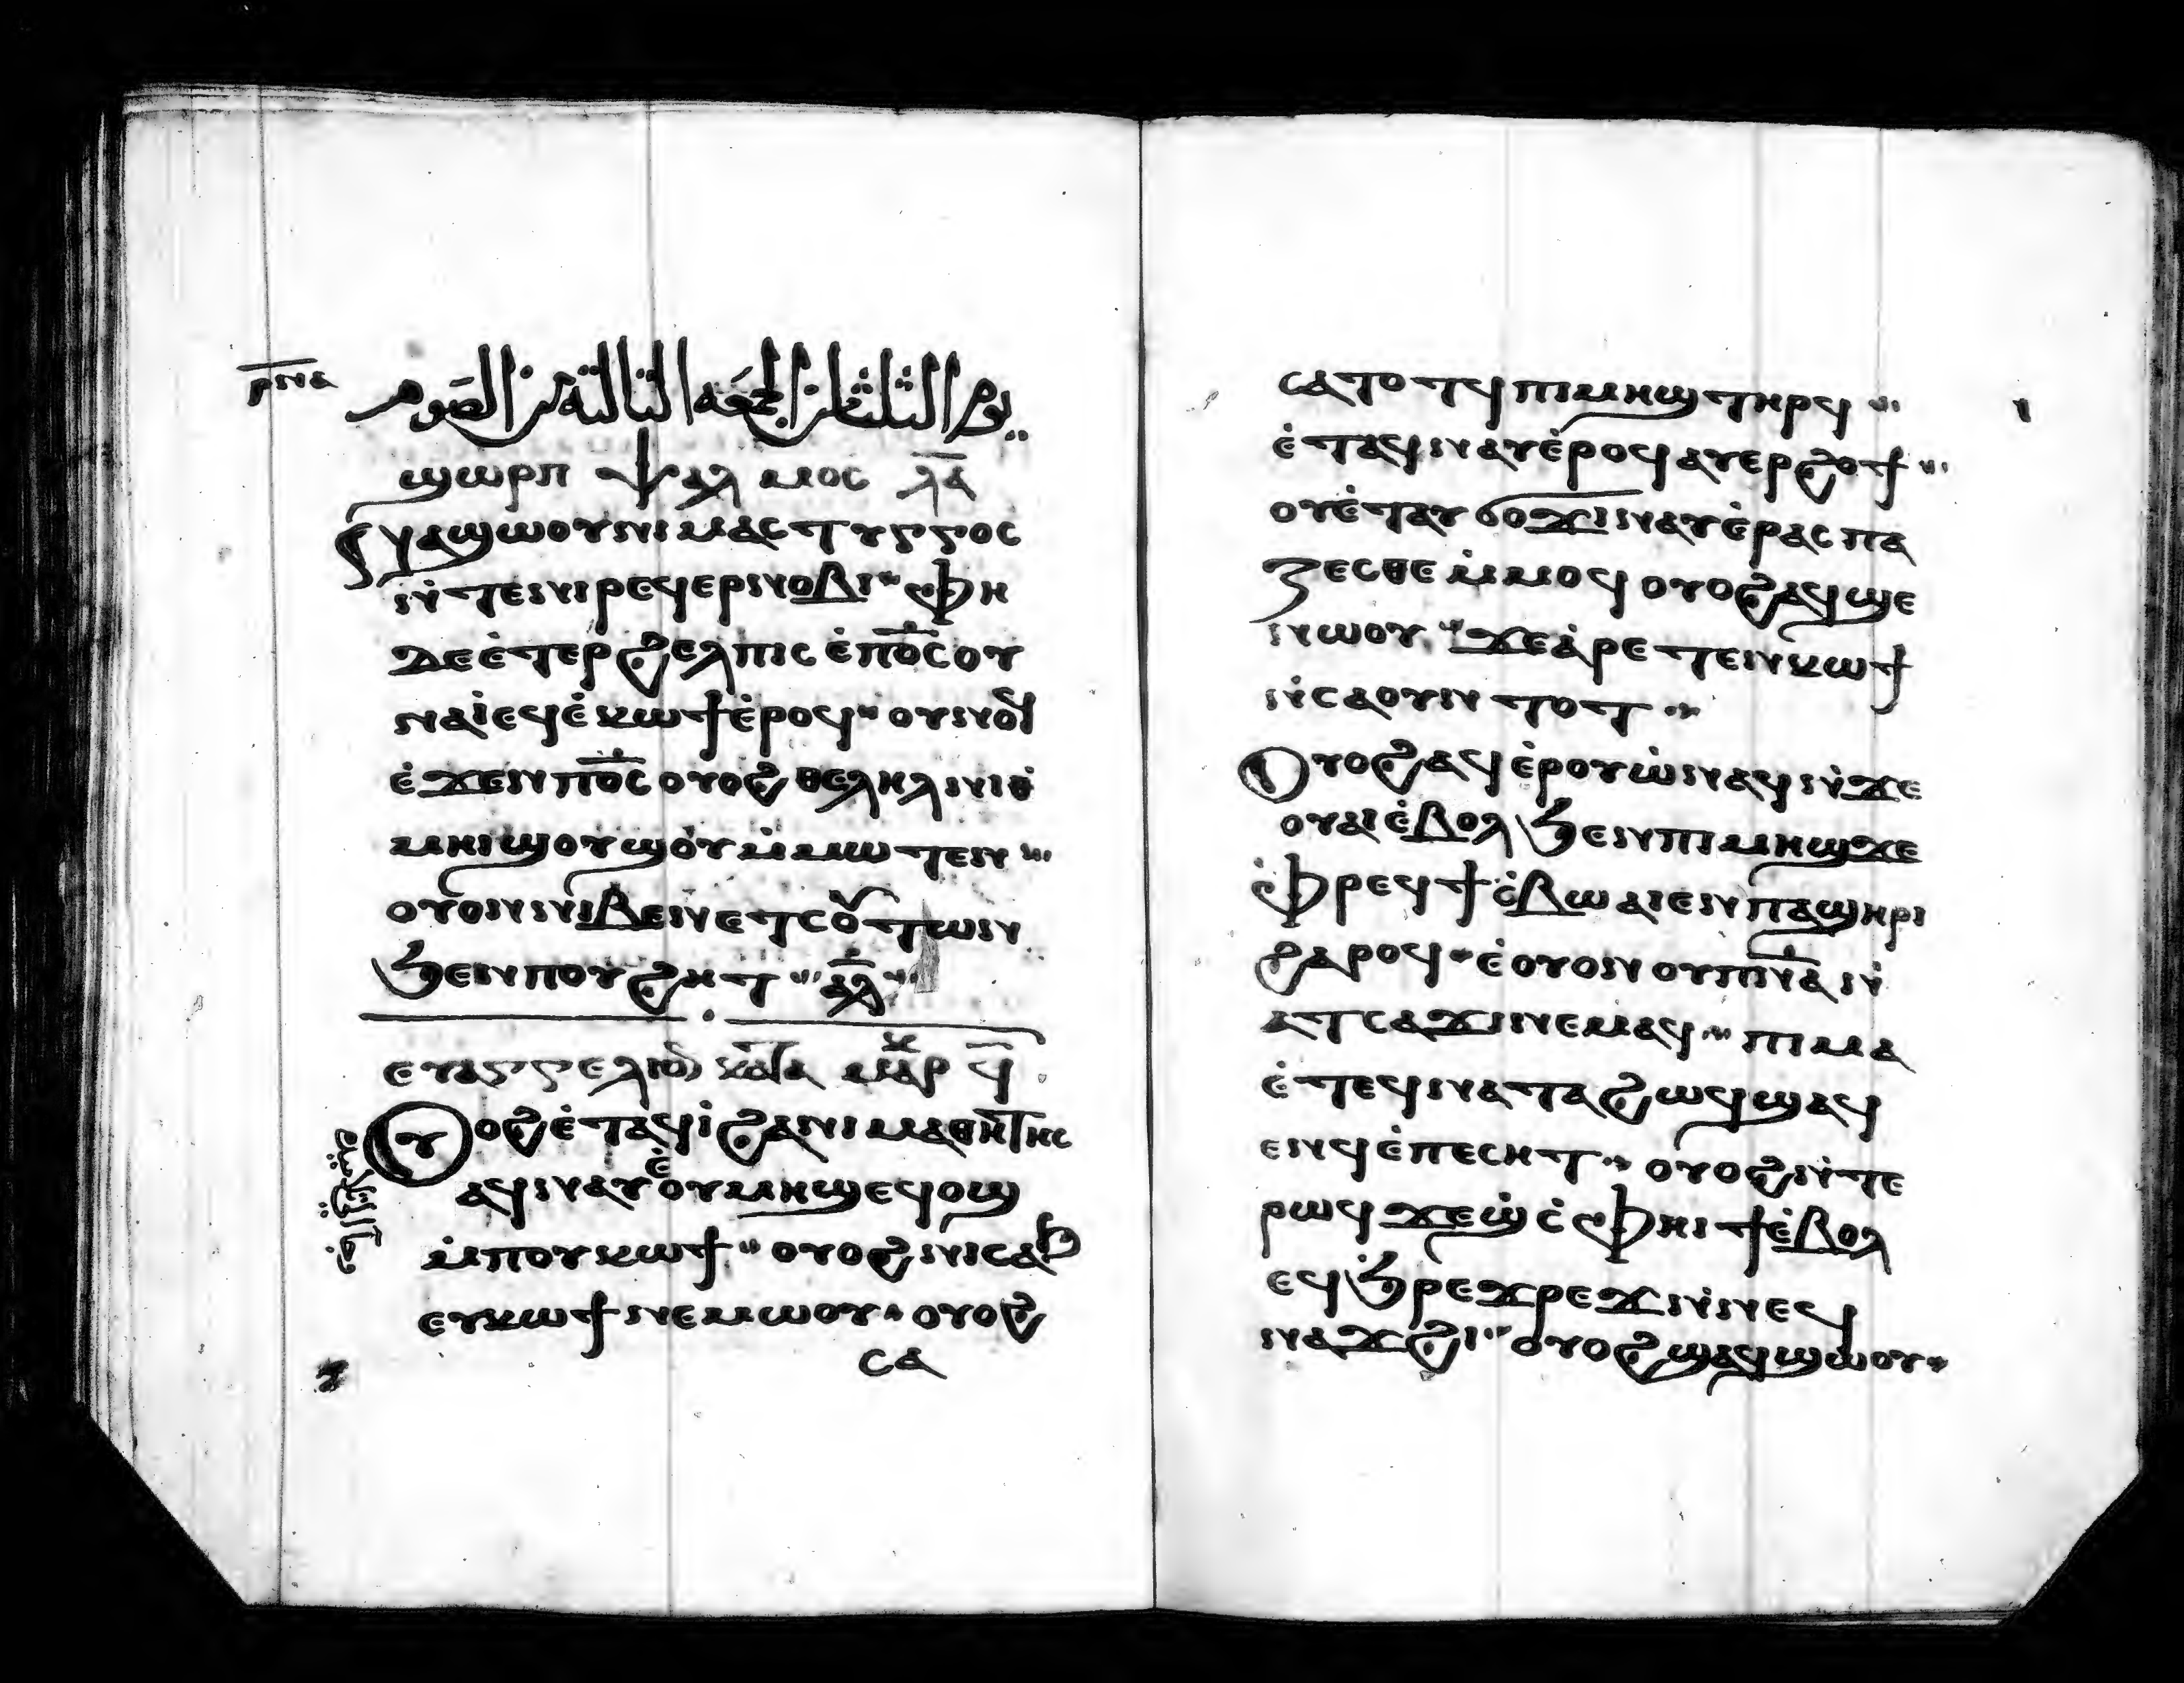 ⲣⲛⲁ
يوم الثلثا من الجمعه الثالثة من الصوم
ϣⲱⲣⲡ ⲯⲁⲗⲙⲟⲥ ⲗ̅ⲁ̅
ⲥⲛⲁϣⲱⲟⲩ ⲛⲓⲙⲁⲥⲧⲩⲅⲅⲟⲥ
ⲛ̀ⲧⲉⲛⲓⲣⲉϥⲉⲣⲛⲟⲃⲓ ⲫⲏ
ⲇⲉ ⲉ̀ⲧⲉⲣϩⲉⲗⲡⲓⲥ ⲉ̀ⲡⲟ̅ⲥ̅ ⲟⲩ
ⲛⲁⲓ̀ ⲉϥⲉ̀ⲕⲱϯ ⲉ̀ⲣⲟϥ ⲟⲩⲛⲟϥ
ⲉ̀ϫⲉⲛ ⲡⲟ̅ⲥ̅ ⲟⲩⲟϩ ⲑⲉⲗⲏⲗ ⲛⲓⲑ
ⲙⲏⲓ ϣⲟⲩϣⲟⲩ ⲙ̀ⲙⲱⲧⲉⲛ
ⲟⲩⲟⲛ ⲛⲓⲃⲉⲛ ⲉⲧⲥⲟⲩⲧⲱⲛ
ϧⲉⲛ ⲡⲟⲩϩⲏⲧ ⲁ̅ⲗ̅
ⲉⲩⲁⲅⲅⲉⲗⲓⲟⲛ ⲕⲁⲧⲁ ⲙⲁⲣⲕ ϥ̅
ⲟⲩⲟϩ ⲉ̀ⲧⲁϥⲓ̀ ϩⲁ ⲛⲓⲙⲁⲑⲏⲧⲏⲥ
ⲁϥⲛⲁⲩ ⲉ̀ⲟⲩⲙⲏϣ ⲉϥⲟϣ
ⲙ̀ⲡⲟⲩⲕⲱϯ ⲟⲩⲟϩ ⲛⲓⲥⲁϧ
ⲉⲩⲕⲱϯ ⲛⲉⲙⲱⲟⲩ ⲟⲩⲟϩ
ⲥⲁ
ⲥⲁⲧⲟⲧϥ ⲡⲓⲙⲏϣ ⲧⲏⲣϥ
ⲉ̀ⲧⲁϥⲛⲁⲩ ⲉ̀ⲣⲟϥ ⲁⲩⲉⲣϩⲟϯ
ⲟⲩⲉ̀ⲧⲁⲩϭⲟϫⲓ ⲛⲁⲩⲉ̀ⲣⲁⲥⲡⲁ
ⲍⲉⲥⲑⲉ ⲙ̀ⲙⲟϥ ⲟⲩⲟϩ ⲁϥϣⲉ
ⲛⲱⲟⲩ ϫⲉ ⲁ̀ⲣⲉⲧⲉⲛⲕⲱϯ
ⲛ̀ⲥⲁ ⲟⲩ ⲛⲧⲟⲧ
ⲟⲩⲟϩ ⲁϥⲉ̀ⲣⲟⲩⲱ̀ ⲛⲁϥ ⲛ̀ϫⲉ
ⲟⲩⲁⲓ ⲉ̀ⲃⲟⲗ ϧⲉⲛ ⲡⲓⲙⲏϣ ϫⲉ
ⲫⲣⲉϥϯⲥ̀ⲃⲱ ⲁⲓⲉⲛ ⲡⲁϣⲏⲣⲓ
ϩⲁⲣⲟϥ ⲉ̀ⲟⲩⲟⲛ ⲟⲩⲡⲛ̅ⲁ̅ ⲛ̀
ⲁⲧⲥⲁϫⲓ ⲛⲉⲙⲁϥ ⲡⲓⲙⲁ
ⲉ̀ⲧⲉϥⲛⲁⲧⲁϩⲱϥ ϣⲁϥ
ⲉⲛϥ ⲉ̀ⲡⲉⲥⲏⲧ ⲟⲩⲟϩ ⲛ̀ⲧⲉ
ⲣⲱϥ ϫⲉϣ ⲥ̀ⲫⲏⲓϯ ⲉ̀ⲃⲟⲗ
ⲉϥϧⲣⲉϫⲣⲉϫ ⲛ̀ⲛⲉϥ
ⲛⲁϫϩⲓ ⲟⲩⲟϩ ϣⲁϥϣⲱⲟⲩ